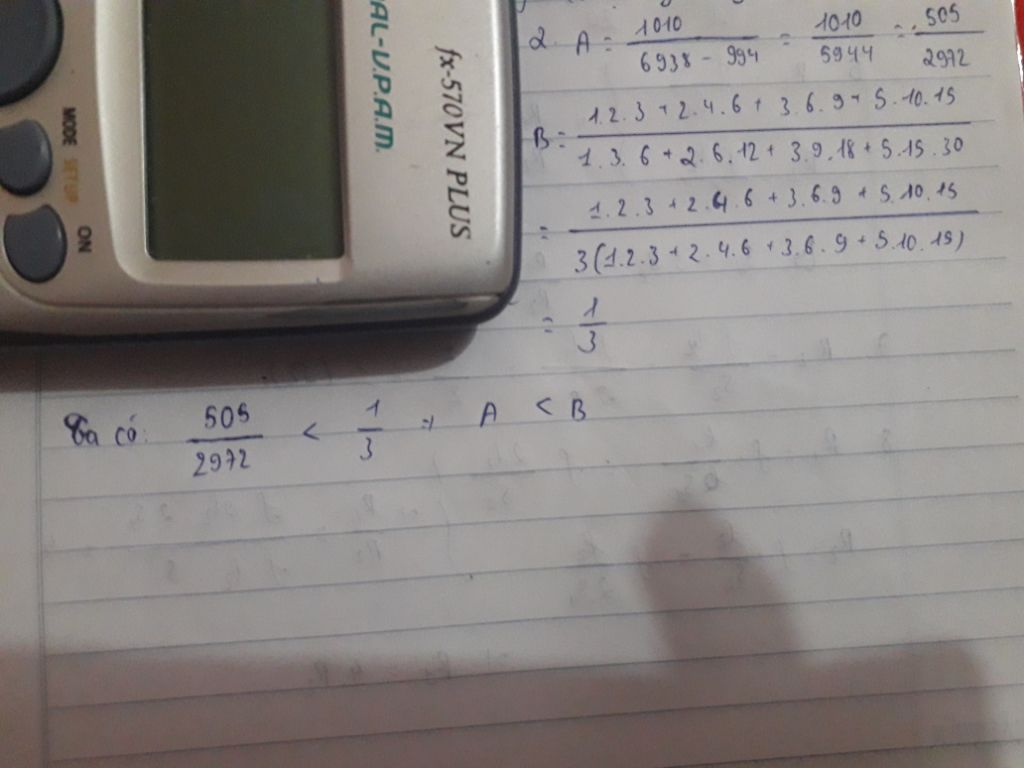 2. A = 1010 / (6938 - 994) = 1010 / 5944 = 505 / 2972
B = (1.2.3 + 2.4.6 + 3.6.9 + 5.10.15) / (1.3.6 + 2.6.12 + 3.9.18 + 5.15.30)
= (1.2.3 + 2.4.6 + 3.6.9 + 5.10.15) / 3(1.2.3 + 2.4.6 + 3.6.9 + 5.10.15)
= 1 / 3
Ta có: 505 / 2972 < 1 / 3 => A < B
fx-570VN PLUS
AL-V.P.A.M.
MODE SETUP
ON